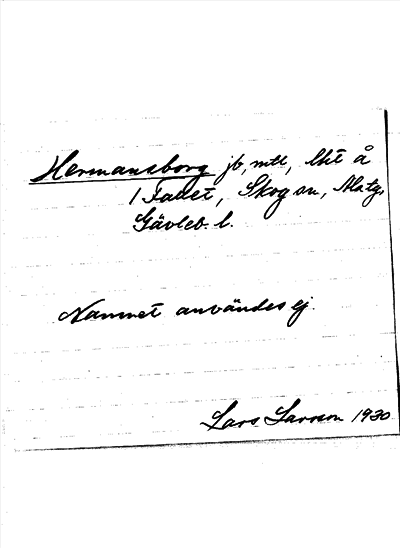 Hermansborg jb, mtl, lht å
1 Fallet, Skog sn, Ala tg,
Gävleb. l.
Namnet användes ej.
Lars Larsson 1930